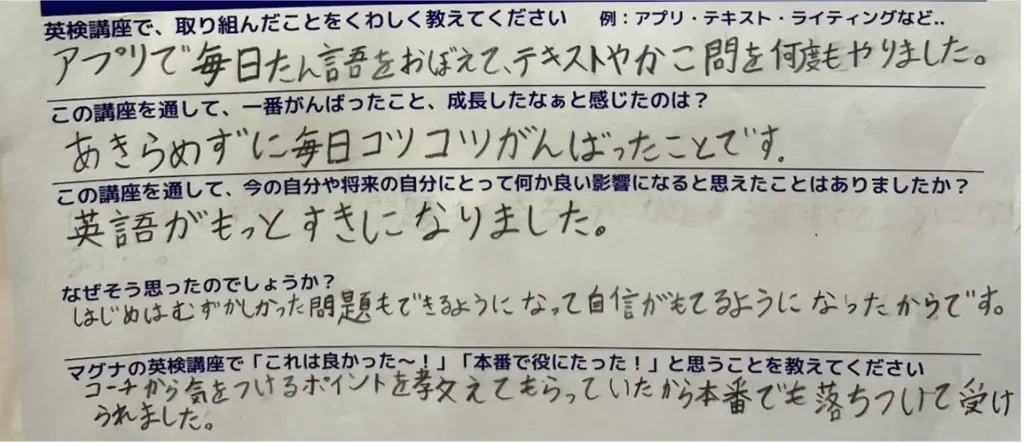 英検講座で、取り組んだことをくわしく教えてください 例：アプリ・テキスト・ライティングなど..
アプリで毎日たん語をおぼえて、テキストやかこ問を何度もやりました。
この講座を通して、一番がんばったこと、成長したなぁと感じたのは？
あきらめずに毎日コツコツがんばったことです.
この講座を通して、今の自分や将来の自分にとって何か良い影響になると思えたことはありましたか？
英語がもっとすきになりました。
なぜそう思ったのでしょうか？
はじめはむずかしかった問題もできるようになって自信がもてるようになったからです。
マグナの英検講座で「これは良かった～！」「本番で役にたった！」と思うことを教えてください
コーチから気をつけるポイントを教えてもらっていたから本番でも落ちついて受け
られました。